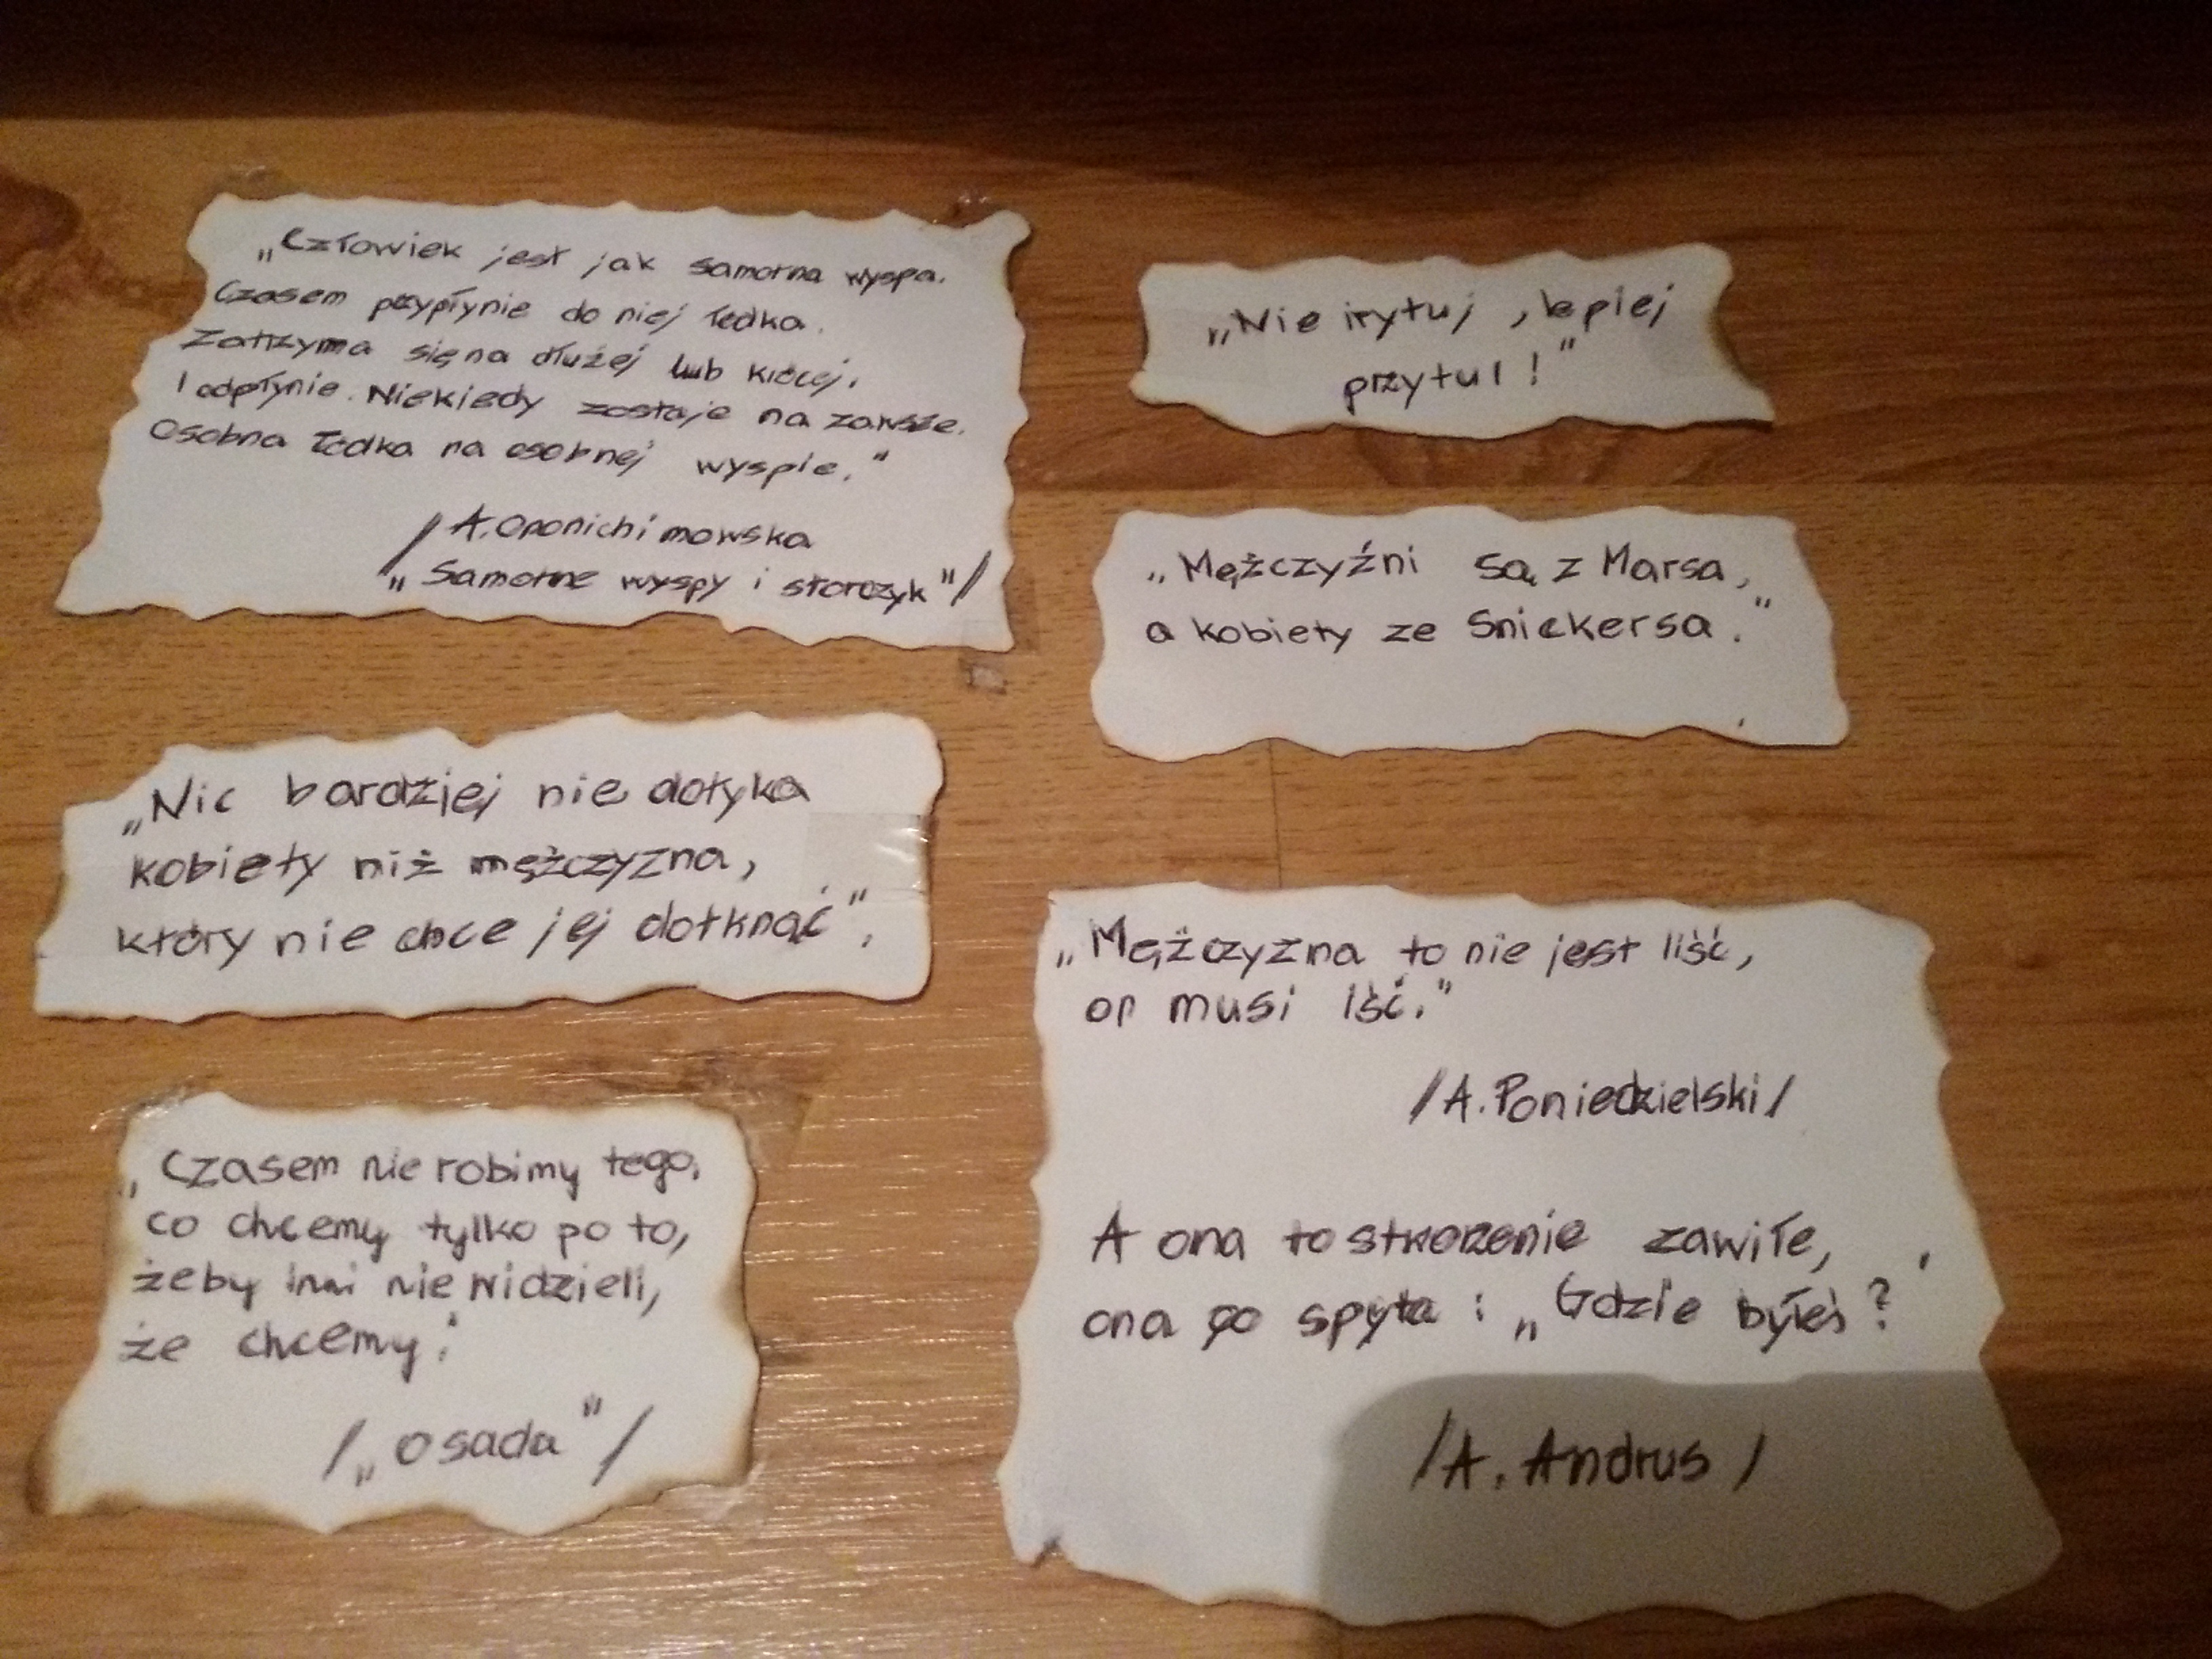 „Człowiek jest jak samotna wyspa.
Czasem przypłynie do niej łódka.
Zatrzyma się na dłużej lub krócej,
I odpłynie. Niekiedy zostaje na zawsze.
Osobna łódka na osobnej wyspie."
/A. Oponichimowska
„Samotne wyspy i storczyk"/
„Nic bardziej nie dotyka
kobiety niż mężczyzna,
który nie chce jej dotknąć".
„Czasem nie robimy tego,
co chcemy tylko po to,
żeby inni nie widzieli,
że chcemy."
/„Osada"/
„Nie irytuj, lepiej
przytul!"
„Mężczyźni są z Marsa,
a kobiety ze Snickersa."
„Mężczyzna to nie jest liść,
on musi iść."
/A. Poniedzielski/
A ona to stworzenie zawiłe,
ona go spyta: „Gdzie byłeś?
/A. Andrus/